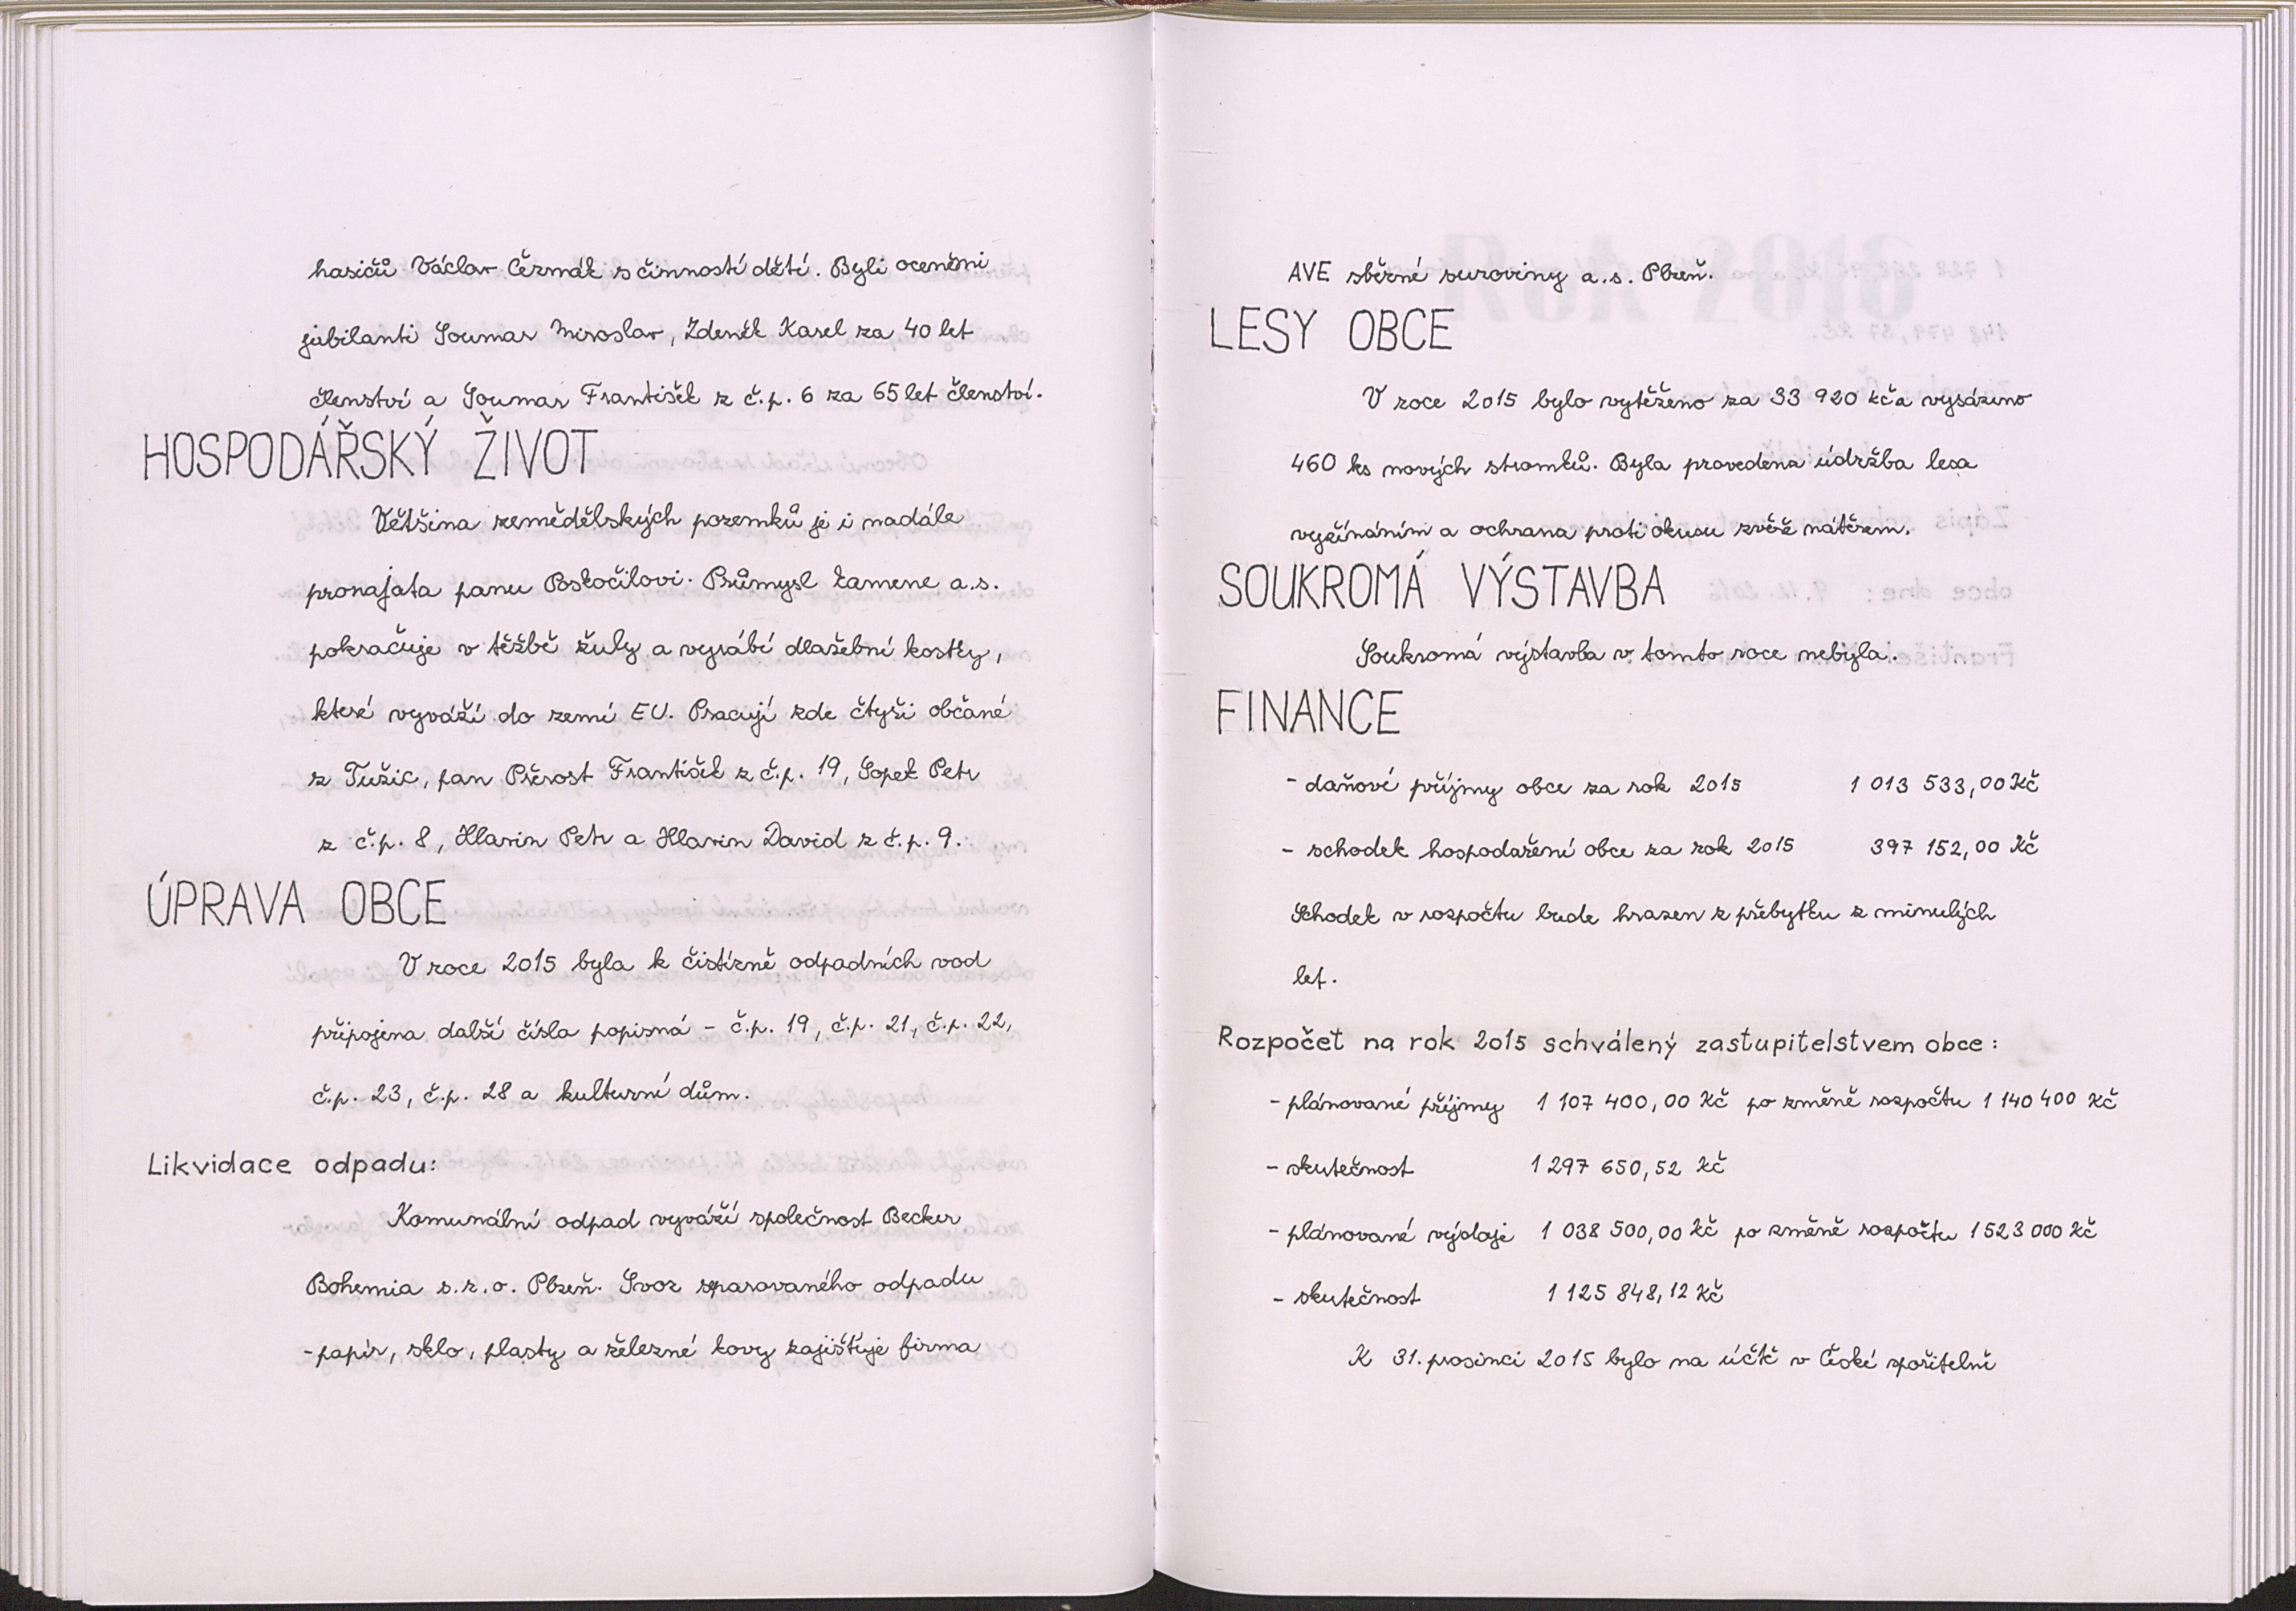 hasičů Václav Čermák s činností dětí. Byli oceněni
jubilanti Soumar Miroslav, Zdeněk Karel za 40 let
členství a Soumar František z č.p. 6 za 65 let členství.
HOSPODÁŘSKÝ ŽIVOT
Většina zemědělských pozemků je i nadále
pronajata panu Poskočilovi. Průmysl kamene a.s.
pokračuje v těžbě žuly a vyrábí dlažební kostky,
které vyváží do zemí EU. Pracují zde čtyři občané
z Tužic, pan Přerost František z č.p. 19, Sopek Petr
z č.p. 8, Hlavin Petr a Hlavin David z č.p. 9.
ÚPRAVA OBCE
V roce 2015 byla k čistírně odpadních vod
připojena další čísla popisná - č.p. 19, č.p. 21, č.p. 22,
č.p. 23, č.p. 28 a kulturní dům.
Likvidace odpadu:
Komunální odpad vyváží společnost Becker
Bohemia s.r.o. Plzeň. Svoz separovaného odpadu
-papír, sklo, plasty a železné kovy zajišťuje firma
AVE sběrné suroviny a.s. Plzeň.
LESY OBCE
V roce 2015 bylo vytěženo za 33 920 kč a vysázeno
460 ks nových stromků. Byla provedena údržba lesa
vyžínáním a ochrana proti okusu zvěře nátěrem.
SOUKROMÁ VÝSTAVBA
Soukromá výstavba v tomto roce nebyla.
FINANCE
- daňové příjmy obce za rok 2015 1 013 533,00 Kč
- schodek hospodaření obce za rok 2015 397 152,00 Kč
Schodek v rozpočtu bude hrazen z přebytku z minulých
let.
Rozpočet na rok 2015 schválený zastupitelstvem obce:
- plánované příjmy 1 107 400,00 Kč po změně rozpočtu 1 140 400 Kč
- skutečnost 1 297 650,52 Kč
- plánované výdaje 1 038 500,00 Kč po změně rozpočtu 1 523 000 Kč
- skutečnost 1 125 848,12 Kč
K 31. prosinci 2015 bylo na účtě v České spořitelně